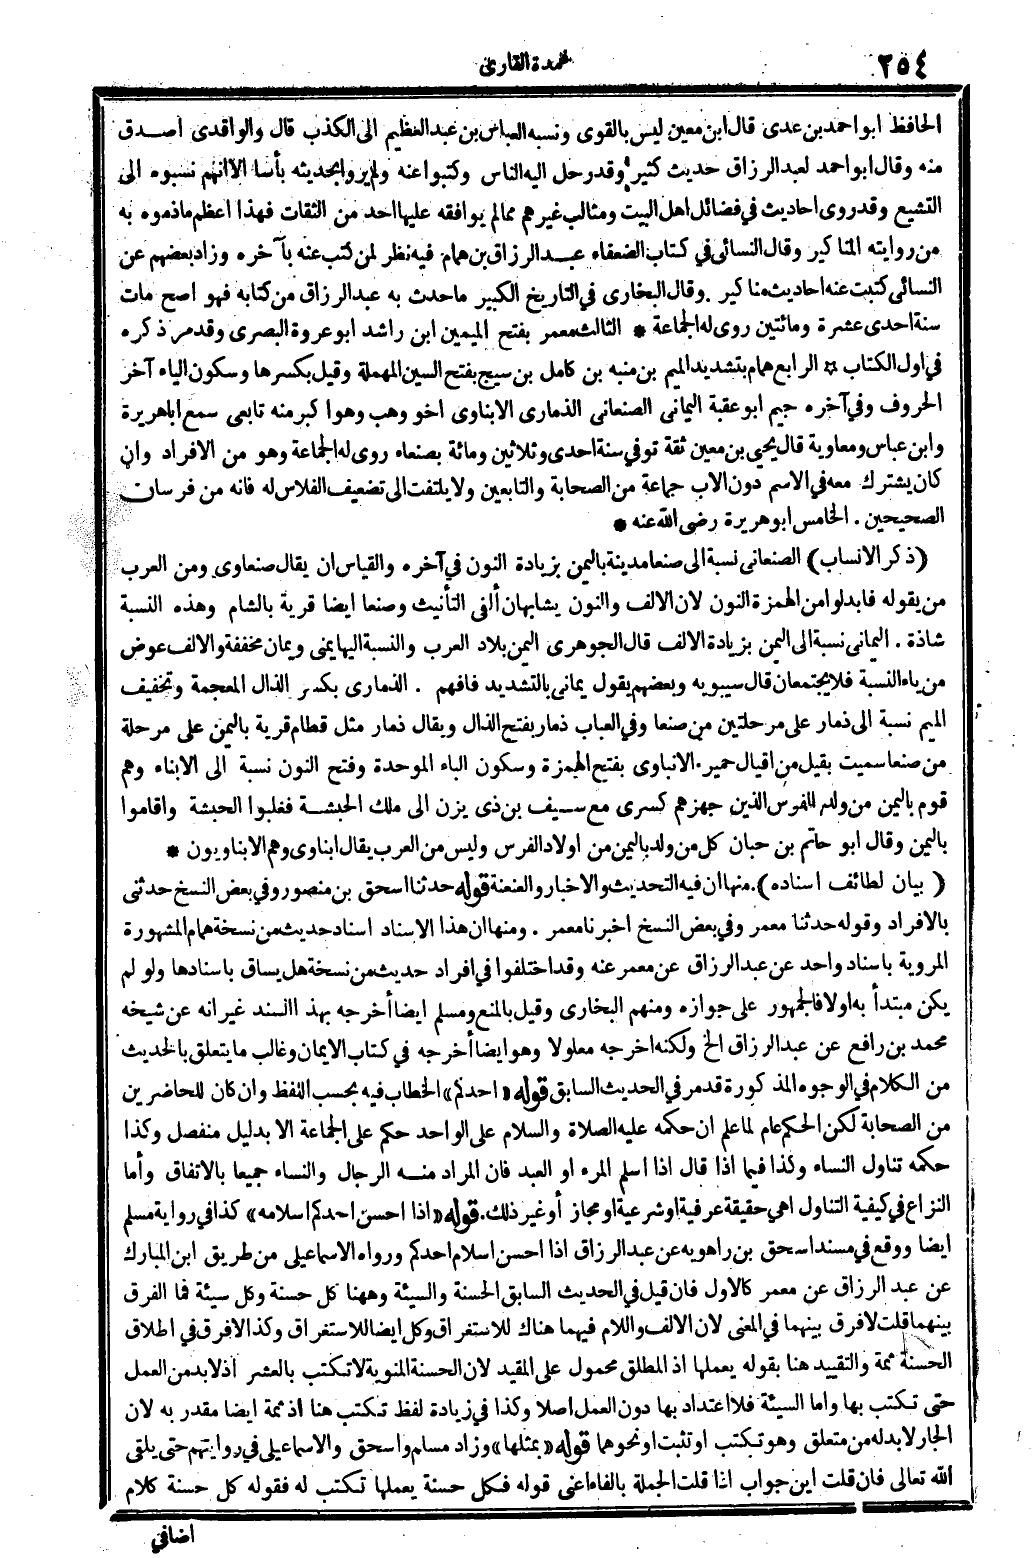 ٢٥٤ عمدة القارئ
الحافظ ابو احمد بن عدى قال ابن معين ليس بالقوى ونسبه العباس بن عبد العظيم الى الكذب قال والواقدى اصدق
منه وقال ابو احمد لعبد الرزاق حديث كثير وقد رحل اليه الناس وكتبوا عنه ولم يروا بحديثه بأسا الا انهم نسبوه الى
التشيع وقد روى احاديث فى فضائل اهل البيت ومثالب غيرهم مما لم يوافقه عليها احد من الثقات فهذا اعظم ما ذموه به
من روايته المناكير وقال النسائى فى كتاب الضعفاء عبد الرزاق بن همام فيه نظر لمن كتب عنه بآخره وزاد بعضهم عن
النسائى كتبت عنه أحاديث مناكير . وقال البخارى فى التاريخ الكبير ما حدث به عبد الرزاق من كتابه فهو اصح مات
سنة احدى عشرة ومائتين روى له الجماعة * الثالث معمر بفتح الميمين ابن راشد ابو عروة البصرى وقد مر ذكره
فى اول الكتاب * الرابع همام بتشديد الميم بن منبه بن كامل بن سيج بفتح السين المهملة وقيل بكسرها وسكون الياء آخر
الحروف وفى آخره جيم ابو عقبة اليمانى الصنعانى الذمارى الابناوى اخو وهب وهو اكبر منه تابعى سمع ابا هريرة
وابن عباس ومعاوية قال يحيى بن معين ثقة توفى سنة احدى وثلاثين ومائة بصنعاء روى له الجماعة وهو من الافراد وان
كان يشترك معه فى الاسم دون الاب جماعة من الصحابة والتابعين ولا يلتفت الى تضعيف الفلاس له فانه من فرسان
الصحيحين . الخامس ابو هريرة رضى الله عنه *
(ذكر الانساب) الصنعانى نسبة الى صنعا مدينة باليمن بزيادة النون فى آخره والقياس ان يقال صنعاوى ومن العرب
من يقوله فابدلوا من الهمزة النون لان الالف والنون يشابهان ألفى التأنيث وصنعا ايضا قرية بالشام وهذه النسبة
شاذة . اليمانى نسبة الى اليمن بزيادة الالف قال الجوهرى اليمن بلاد العرب والنسبة اليها يمنى ويمان مخففة والالف عوض
من ياء النسبة فلا يجتمعان قال سيبويه وبعضهم يقول يمانى بالتشديد فافهم . الذمارى بكسر الذال المعجمة وتخفيف
الميم نسبة الى ذمار على مرحلتين من صنعا وفى العباب ذمار بفتح الذال ويقال ذمار مثل قطام قرية باليمن على مرحلة
من صنعا سميت بقيل من اقيال حمير. الانباوى بفتح الهمزة وسكون الباء الموحدة وفتح النون نسبة الى الابناء وهم
قوم باليمن من ولد الفرس الذين جهزهم كسرى مع سيف بن ذى يزن الى ملك الحبشة فغلبوا الحبشة واقاموا
باليمن وقال ابو حاتم بن حبان كل من ولد باليمن من اولاد الفرس وليس من العرب يقال ابناوى وهم الابناويون *
( بيان لطائف اسناده ). منها ان فيه التحديث والاخبار والعنعنة قوله حدثنا اسحق بن منصور وفى بعض النسخ حدثنى
بالافراد وقوله حدثنا معمر وفى بعض النسخ اخبرنا معمر . ومنها ان هذا الاسناد اسناد حديث من نسخة همام المشهورة
المروية باسناد واحد عن عبد الرزاق عن معمر عنه وقد اختلفوا فى افراد حديث من نسخة هل يساق باسنادها ولو لم
يكن مبتدأ به اولا فالجمهور على جوازه ومنهم البخارى وقيل بالمنع ومسلم ايضا أخرجه بهذا السند غير انه عن شيخه
محمد بن رافع عن عبد الرزاق الخ ولكنه اخرجه معلولا وهو ايضا أخرجه فى كتاب الايمان وغالب ما يتعلق بالحديث
من الكلام فى الوجوه المذكورة قد مر فى الحديث السابق قوله « احدكم » الخطاب فيه بحسب اللفظ وان كان للحاضرين
من الصحابة لكن الحكم عام لما علم ان حكمه عليه الصلاة والسلام على الواحد حكم على الجماعة الا بدليل منفصل وكذا
حكمه تناول النساء وكذا فيما اذا قال اذا اسلم المرء او العبد فان المراد منه الرجال والنساء جميعا بالاتفاق وأما
النزاع فى كيفية التناول اهى حقيقة عرفية او شرعية او مجاز أو غير ذلك. قوله «اذا احسن احدكم اسلامه» كذا فى رواية مسلم
ايضا ووقع فى مسند اسحق بن راهويه عن عبد الرزاق اذا احسن اسلام احدكم ورواه الاسماعيلى من طريق ابن المبارك
عن عبد الرزاق عن معمر كالاول فان قيل فى الحديث السابق الحسنة والسيئة وههنا كل حسنة وكل سيئة فما الفرق
بينهما قلت لا فرق بينهما فى المعنى لان الالف واللام فيهما هناك للاستغراق وكل ايضا للاستغراق وكذا لا فرق فى اطلاق
الحسنة ثمة والتقييد هنا بقوله يعملها اذ المطلق محمول على المقيد لان الحسنة المنوية لا تكتب بالعشر اذ لا بد من العمل
حتى تكتب بها واما السيئة فلا اعتداد بها دون العمل اصلا وكذا فى زيادة لفظ تكتب هنا اذ ثمة ايضا مقدر به لان
الجار لا بد له من متعلق وهو تكتب او تثبت او نحوهما قوله «بمثلها» وزاد مسلم واسحق والاسماعيلى فى روايتهم حتى يلقى
الله تعالى فان قلت اين جواب اذا قلت الجملة بالفاء اعنى قوله فكل حسنة يعملها تكتب له فقوله كل حسنة كلام
اضافى